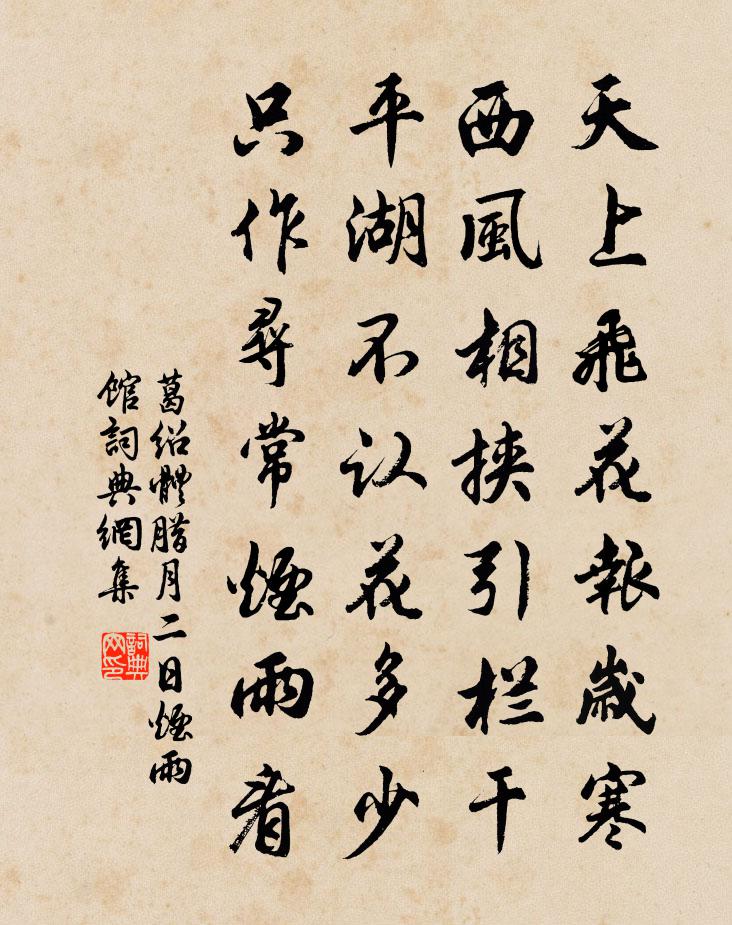 天上飛花報歲寒
西風相挾引栏干
平湖不认花多少
只作尋常煙雨看
葛绍體腊月二日煙雨
馆詞典網集
詞典
网印